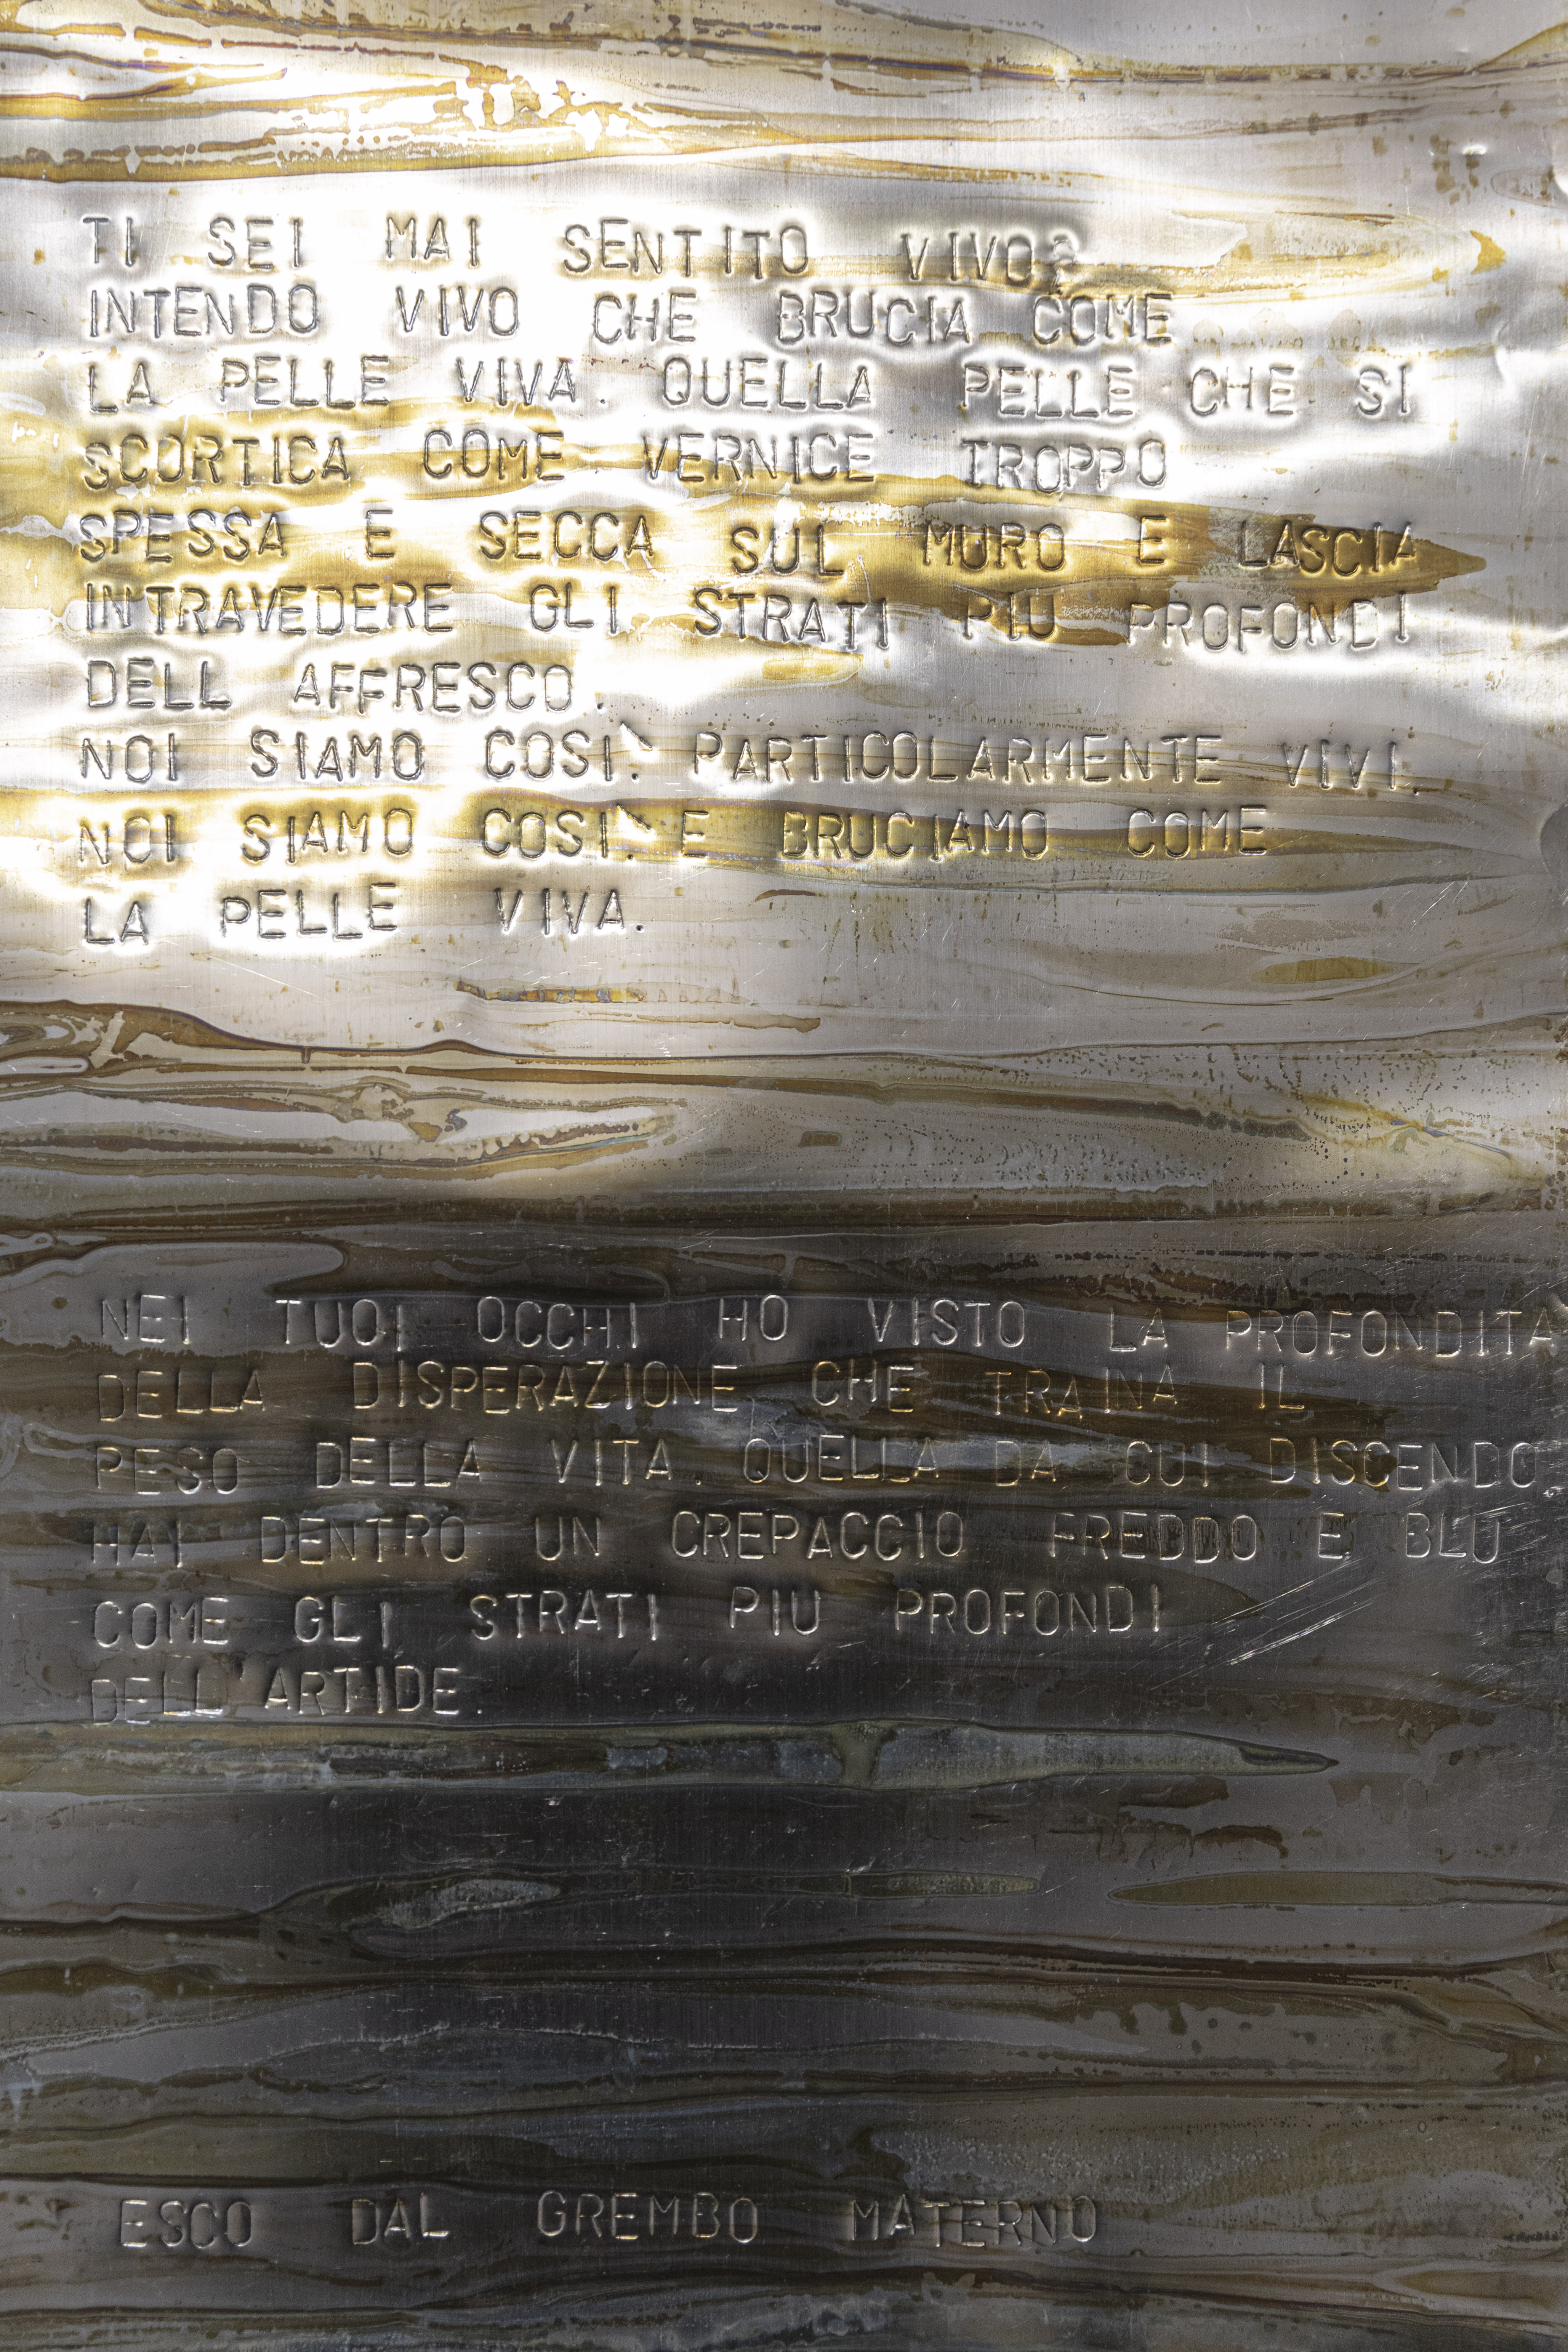 TI SEI MAI SENTITO VIVO?
INTENDO VIVO CHE BRUCIA COME
LA PELLE VIVA. QUELLA PELLE CHE SI
SCORTICA COME VERNICE TROPPO
SPESSA E SECCA SUL MURO E LASCIA
INTRAVEDERE GLI STRATI PIU PROFONDI
DELL AFFRESCO.
NOI SIAMO COSI`. PARTICOLARMENTE VIVI.
NOI SIAMO COSI`. E BRUCIAMO COME
LA PELLE VIVA.
NEI TUOI OCCHI HO VISTO LA PROFONDITA`
DELLA DISPERAZIONE CHE TRAINA IL
PESO DELLA VITA. QUELLA DA CUI DISCENDO.
HAI DENTRO UN CREPACCIO FREDDO E BLU
COME GLI STRATI PIU PROFONDI
DELL'ARTIDE.
ESCO DAL GREMBO MATERNO